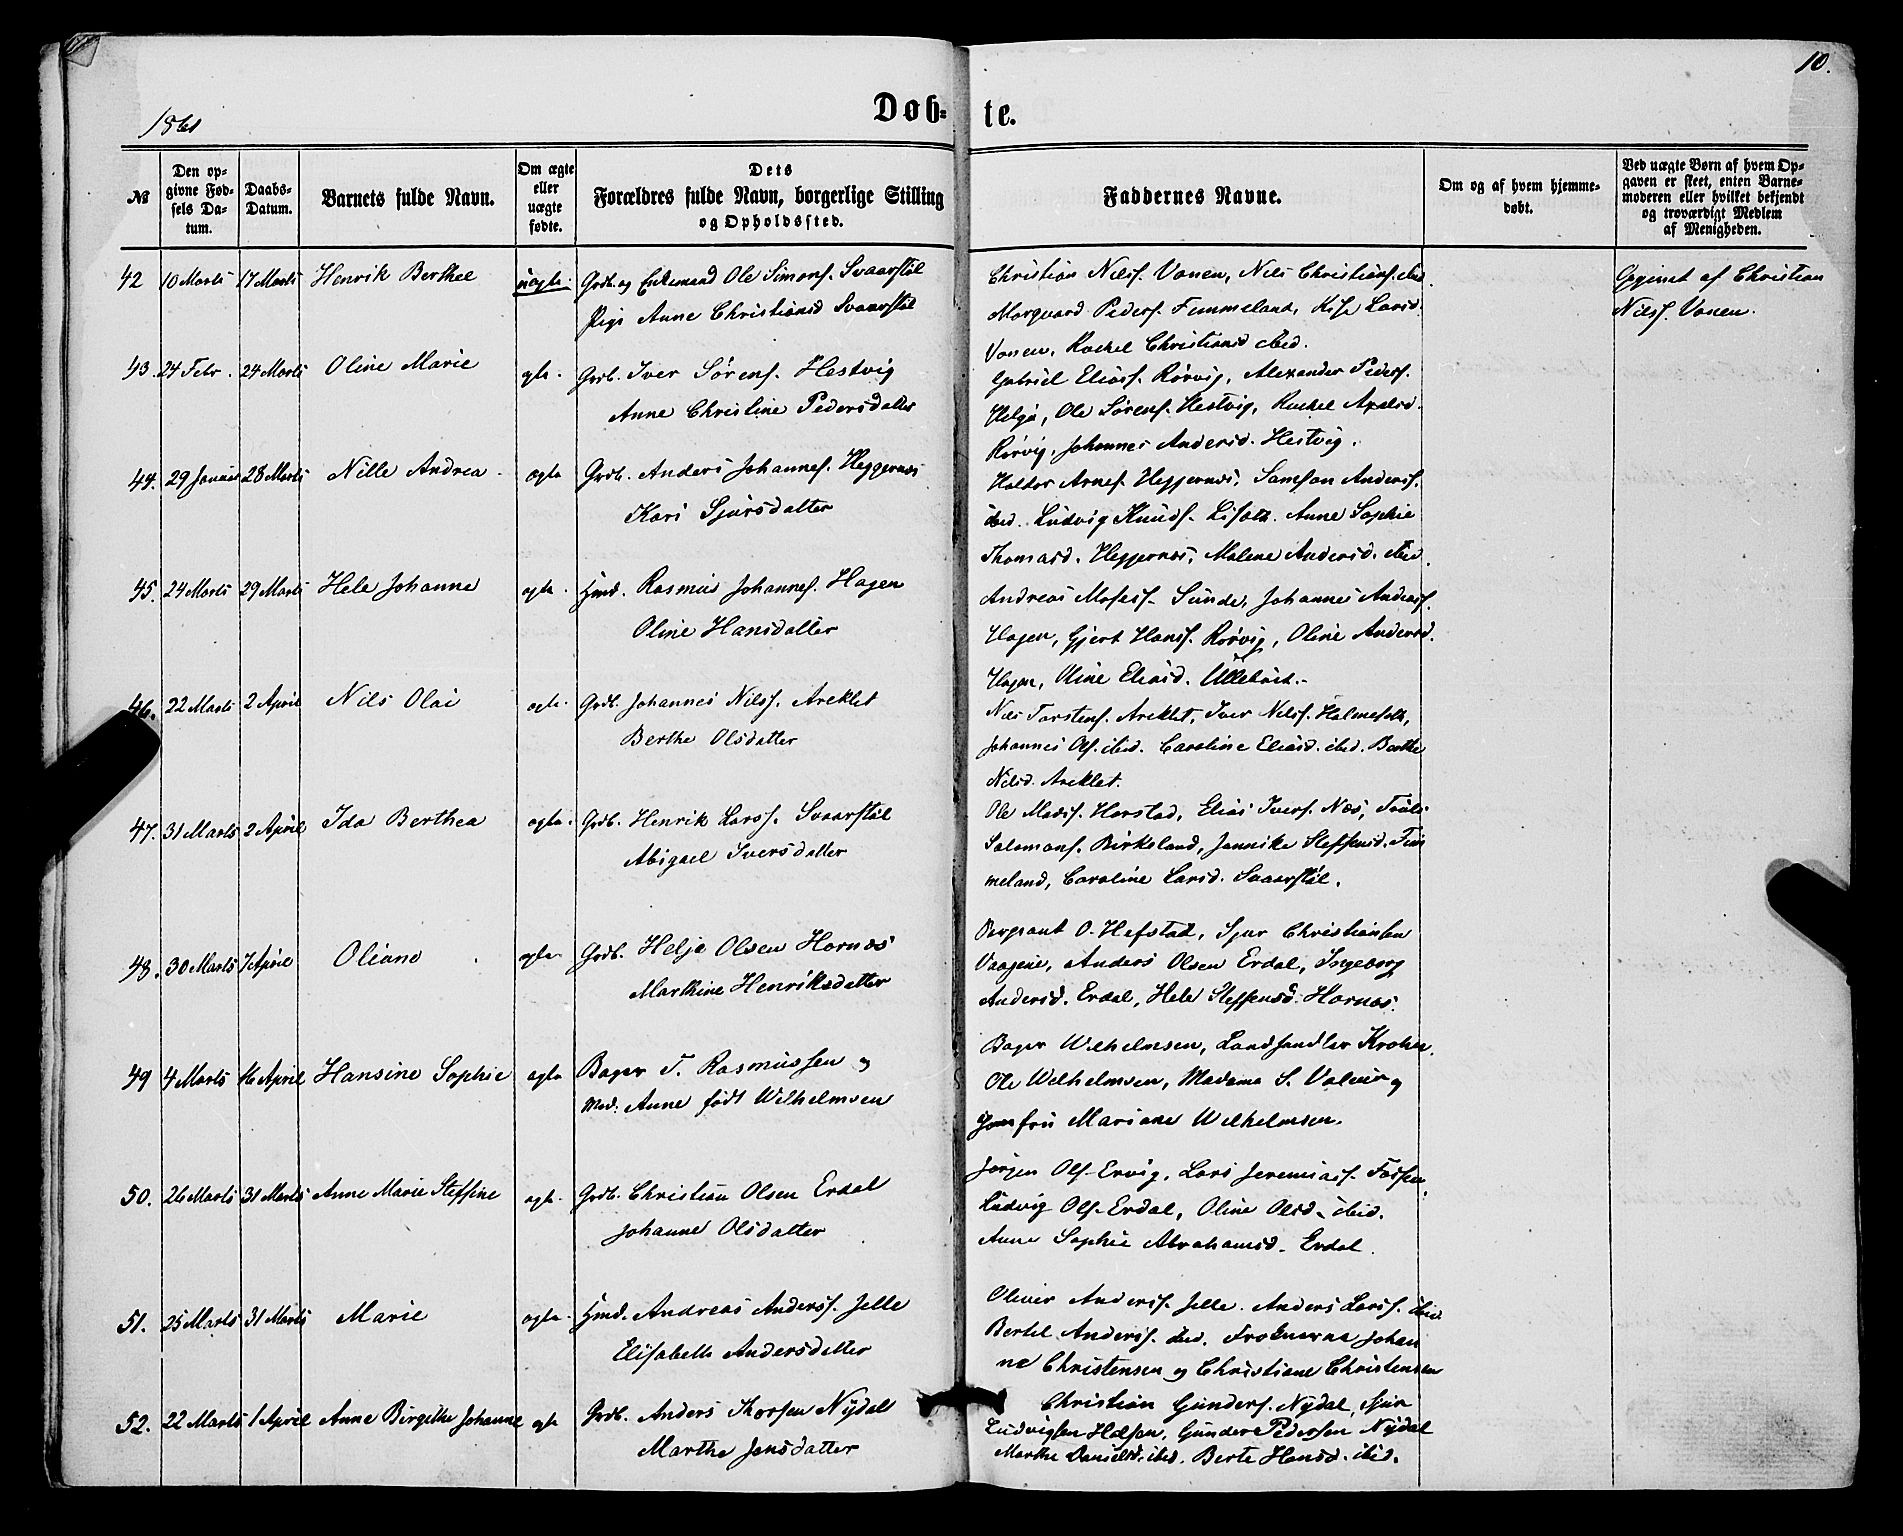 10.
1861
Døb-
te.
№
Den op-
givne Fød-
sels Da-
tum.
Daabs-
Datum.
Barnets fulde Navn.
Om ægte
eller
uægte
fødte.
Dets
Forældres fulde Navn, borgerlige Stilling
og Opholdssted.
Faddernes Navne.
Om og af hvem hjemme-
døbt.
Ved uægte Børn af hvem Op-
gaven er skeet, enten Barne-
moderen eller hvilket bekjendt
og troværdigt Medlem
af Menigheden.
42 10 Marts 17 Marts Henrik Berthel uægte. Grdb. og Enkemand Ole Simons. Svaarstøl
Pige Anne Christiansd Svaarstøl
Christian Nilss. Vonen, Nils Christians. ibid.
Morqvard Peders. Fummeland, Larsd.
Vonen, Rachel Christiansd ibid.
Opgivet af Christian
Nilss. Vonen.
43. 24 Febr. 24 Marts Oline Marie ægte. Grdb. Iver Sørens. Hestvig
Anne Christine Pedersdatter
Gabriel Eliass. Rørvig, Alexander Peders.
Helgø, Ole Sørens. Hestvig, Rachel Axelsd.
Rørvig, Johannes Andersd. Hestvig.
44. 29 Januar 28 Marts Nille Andrea ægte Grdb. Anders Johannes. Heggernæs
Kari Sjursdatter
Haldor Arnes. Heggernæs, Samson Anderss.
ibid. Ludvig Knuds. Anne Sophie
Thomasd. Heggernæs, Malene Andersd. ibid.
45. 24 Marts 29 Marts Hele Johanne ægte. Hmd. Rasmus Johannes. Hagen
Oline Hansdatter
Andreas Moses. Sunde, Johannes Andreass.
Hagen, Gjert Hanss. Rørvig, Oline Andersd.
Hagen, Oline Eliasd. Ullebust.
46. 22 Marts 2 April Nils Olai ægte. Grdb. Johannes Nilss. Areklet
Berthe Olsdatter
Nils Torstens. Areklet, Iver Nilss.
Johannes Ols. ibid. Caroline Eliasd. ibid. Berthe
Nilsd. Areklet.
47. 31 Marts 2 April Ida Berthea ægte. Grdb. Henrik Larss. Svaarstøl
Abigael Iversdatter
Ole Madss. Harstad, Elias Ivers. Næs,
Salamons. Birkeland, Jannike Steffensd. Fum
meland, Caroline Larsd. Svaarstøl.
48. 30 Marts 7 April Oliane ægte Grdb. Helje Olsen Hornæs
Marthine Henriksdatter
Sergeant O. Hefstad, Sjur Christiansen
Vaagene, Anders Olsen Erdal, Ingeborg
Andersd. Erdal, Hele Steffensd. Hornæs.
49 4 Marts 16 April Hansine Sophie ægte Bager T. Rasmussen og
Mad. Anne født Wilhelmsen
Bager Wilhelmsen, Landhandler Krohn.
Ole Wilhelmsen, Madame S. og
Jomfru Mariane Wilhelmsen.
50. 26 Marts 31 Marts Anne Marie Steffine ægte. Grdb. Christian Olsen Erdal
Johanne Olsdatter
Jørgen Ols. Ervig, Lars Jeremiass. Fossen,
Ludvig Ols. Erdal, Oline Olsd. ibid.
Anne Sophie Abrahamsd. Erdal.
51. 25 Marts 31 Marts Marie ægte. Hmd. Andreas Anderss. Jelle
Elisabeth Andersdatter
Oliver Anderss. Jelle. Anders Larss. ibid
Bertel Anderss. ibid. Frøknerne Johan
ne Christensen og Christiane Christensen
52. 22 Marts 1 April Anne Birgithe Johanne ægt Grdb. Anders Thorsen Nydal
Marthe Jensdatter
Christian Gunders. Nydal, Sjur
Ludvigsen, Gunder Pedersen Nydal
Marthe Danielsd. ibid. Berte Hansd. ibid.